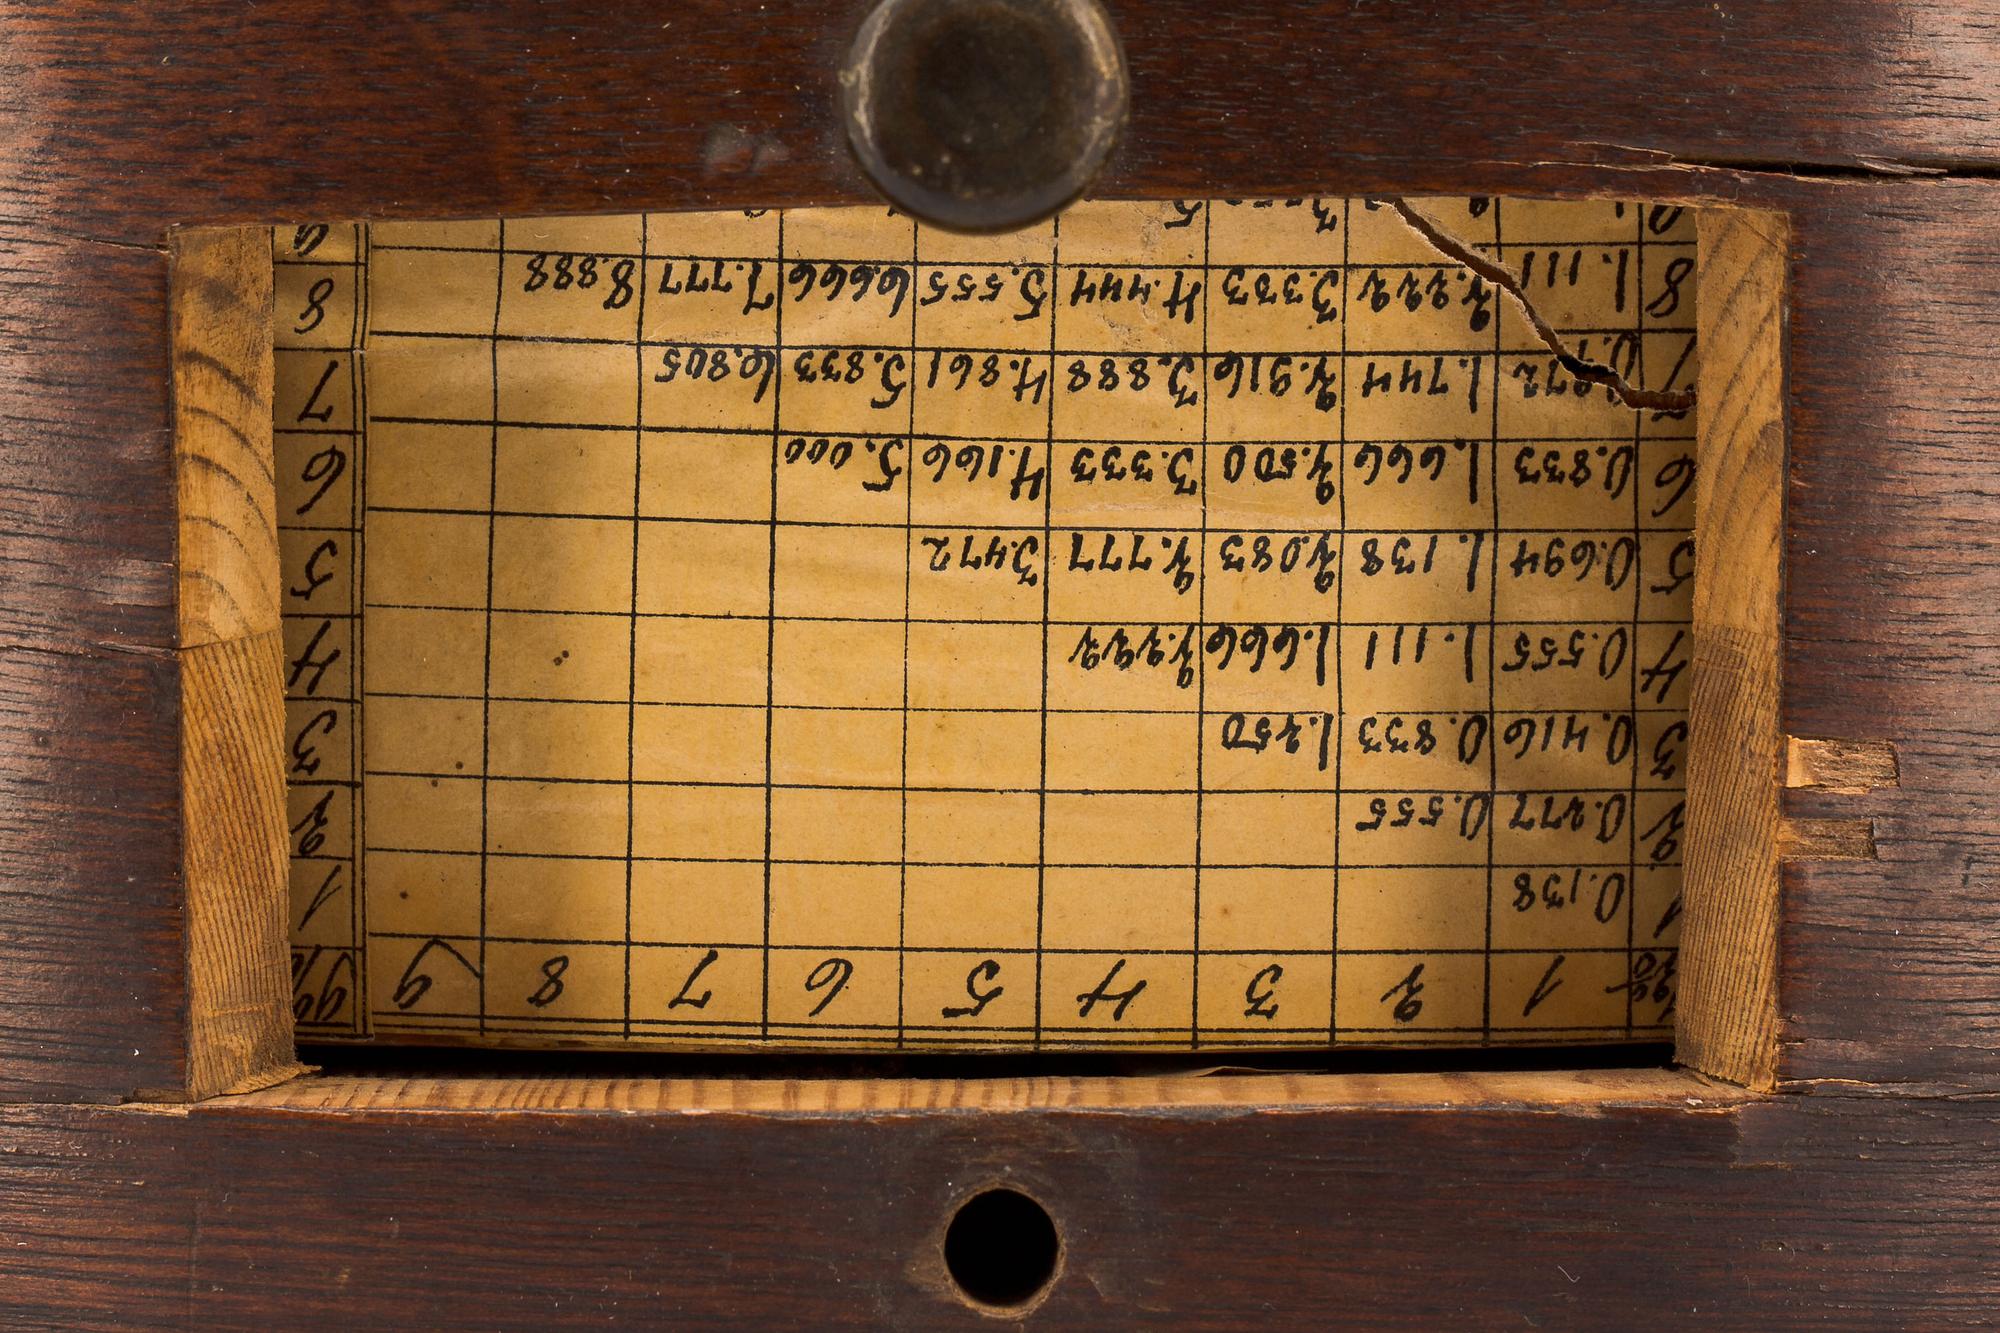 1 2 3 4 5 6 7 8 9
1 0.138 1
2 0.277 0.555 2
3 0.416 0.833 1.250 3
4 0.555 1.111 1.666 2.222 4
5 0.694 1.138 2.083 2.777 3.472 5
6 0.833 1.666 2.500 3.333 4.166 5.000 6
7 1.744 2.916 3.888 4.861 5.833 6.805 7
8 1.111 2.222 3.333 4.444 5.555 6.666 7.777 8.888 8